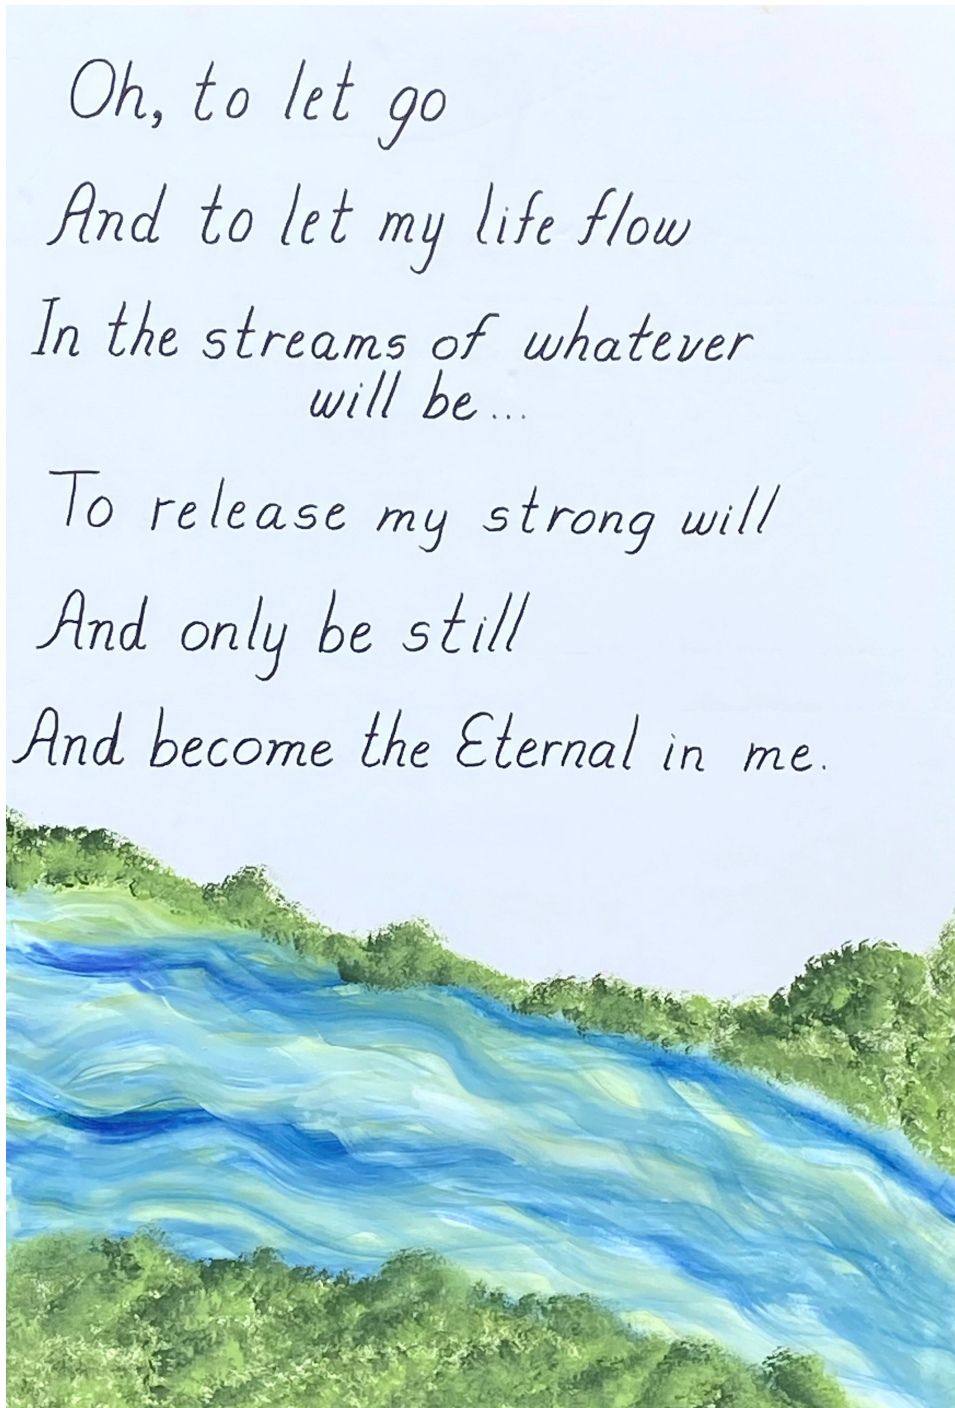 Oh, to let go
And to let my life flow
In the streams of whatever
will be...
To release my strong will
And only be still
And become the Eternal in me.